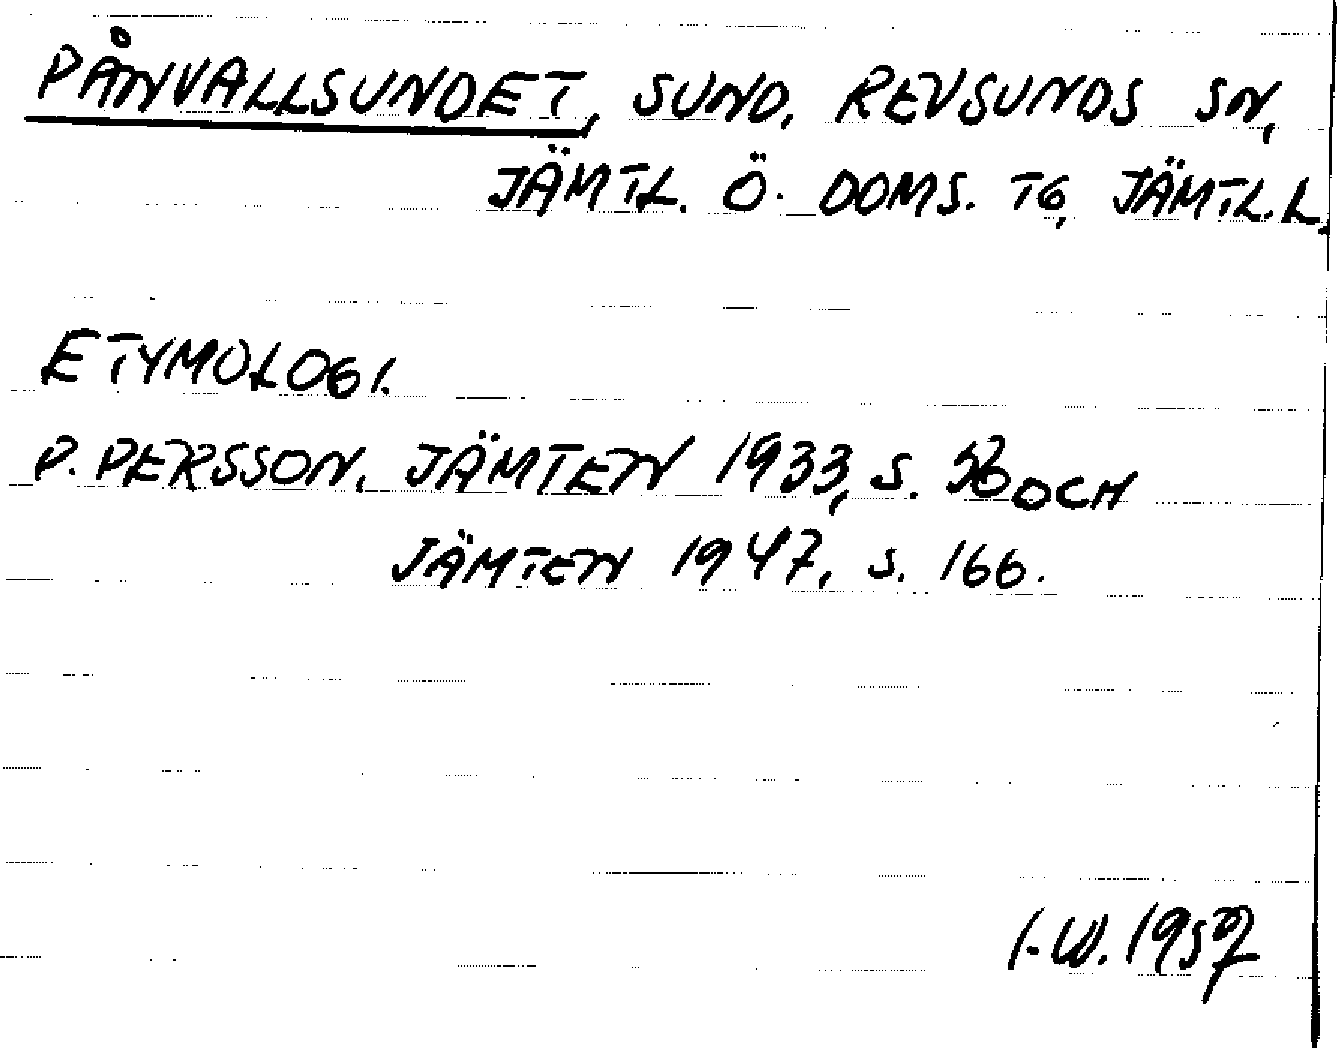 PÅNVALLSUNDET, SUND, REVSUNDS SN,
JÄMTL. Ö. DOMS. TG, JÄMTL. L.
ETYMOLOGI.
P. PERSSON, JÄMTEN 1933, S. OCH
JÄMTEN 1947, S. 166.
I. W.